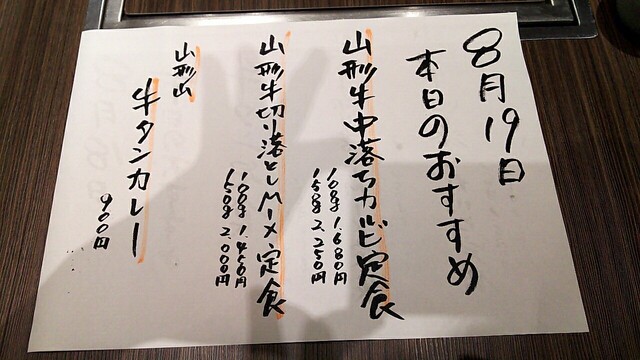 8月19日
本日のおすすめ
山形牛中落ちカルビ定食
100g 1.680円
150g 2.250円
山形牛切り落としMIX定食
100g 1.450円
150g 2.000円
山形山
牛タンカレー
900円